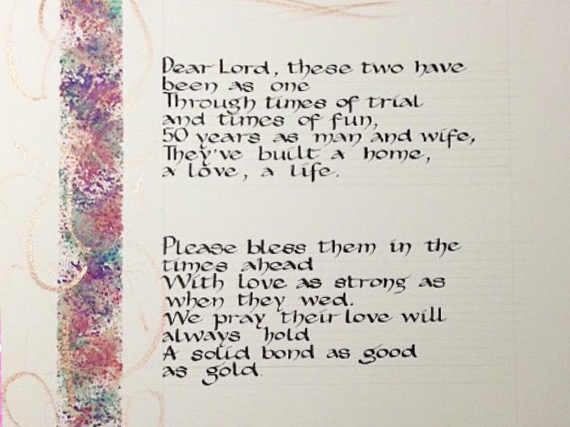 Dear Lord, these two have
been as one
Through times of trial
and times of fun,
50 years as man and wife,
They've built a home,
a love, a life.
Please bless them in the
times ahead
With love as strong as
when they wed.
We pray their love will
always hold
A solid bond as good
as gold.